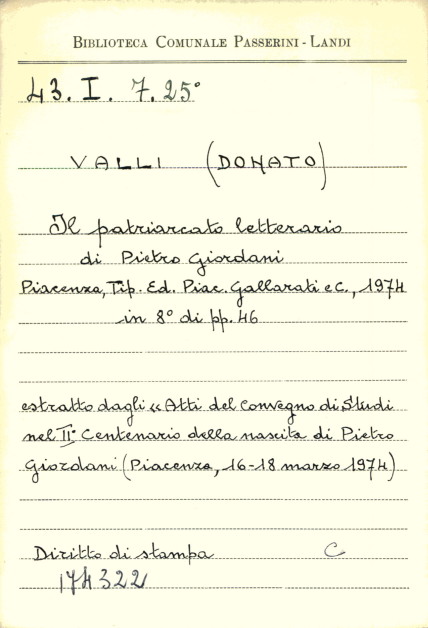 BIBLIOTECA COMUNALE PASSERINI - LANDI
43. I. 7. 25°
VALLI (DONATO)
Il patriarcato letterario
di Pietro Giordani
Piacenza, Tip. Ed. Piac. Gallarati e C., 1974
in 8° di pp. 46
estratto dagli « Atti del Convegno di Studi
nel II° Centenario della nascita di Pietro
Giordani (Piacenza, 16-18 marzo 1974)
Diritto di stampa C
174322